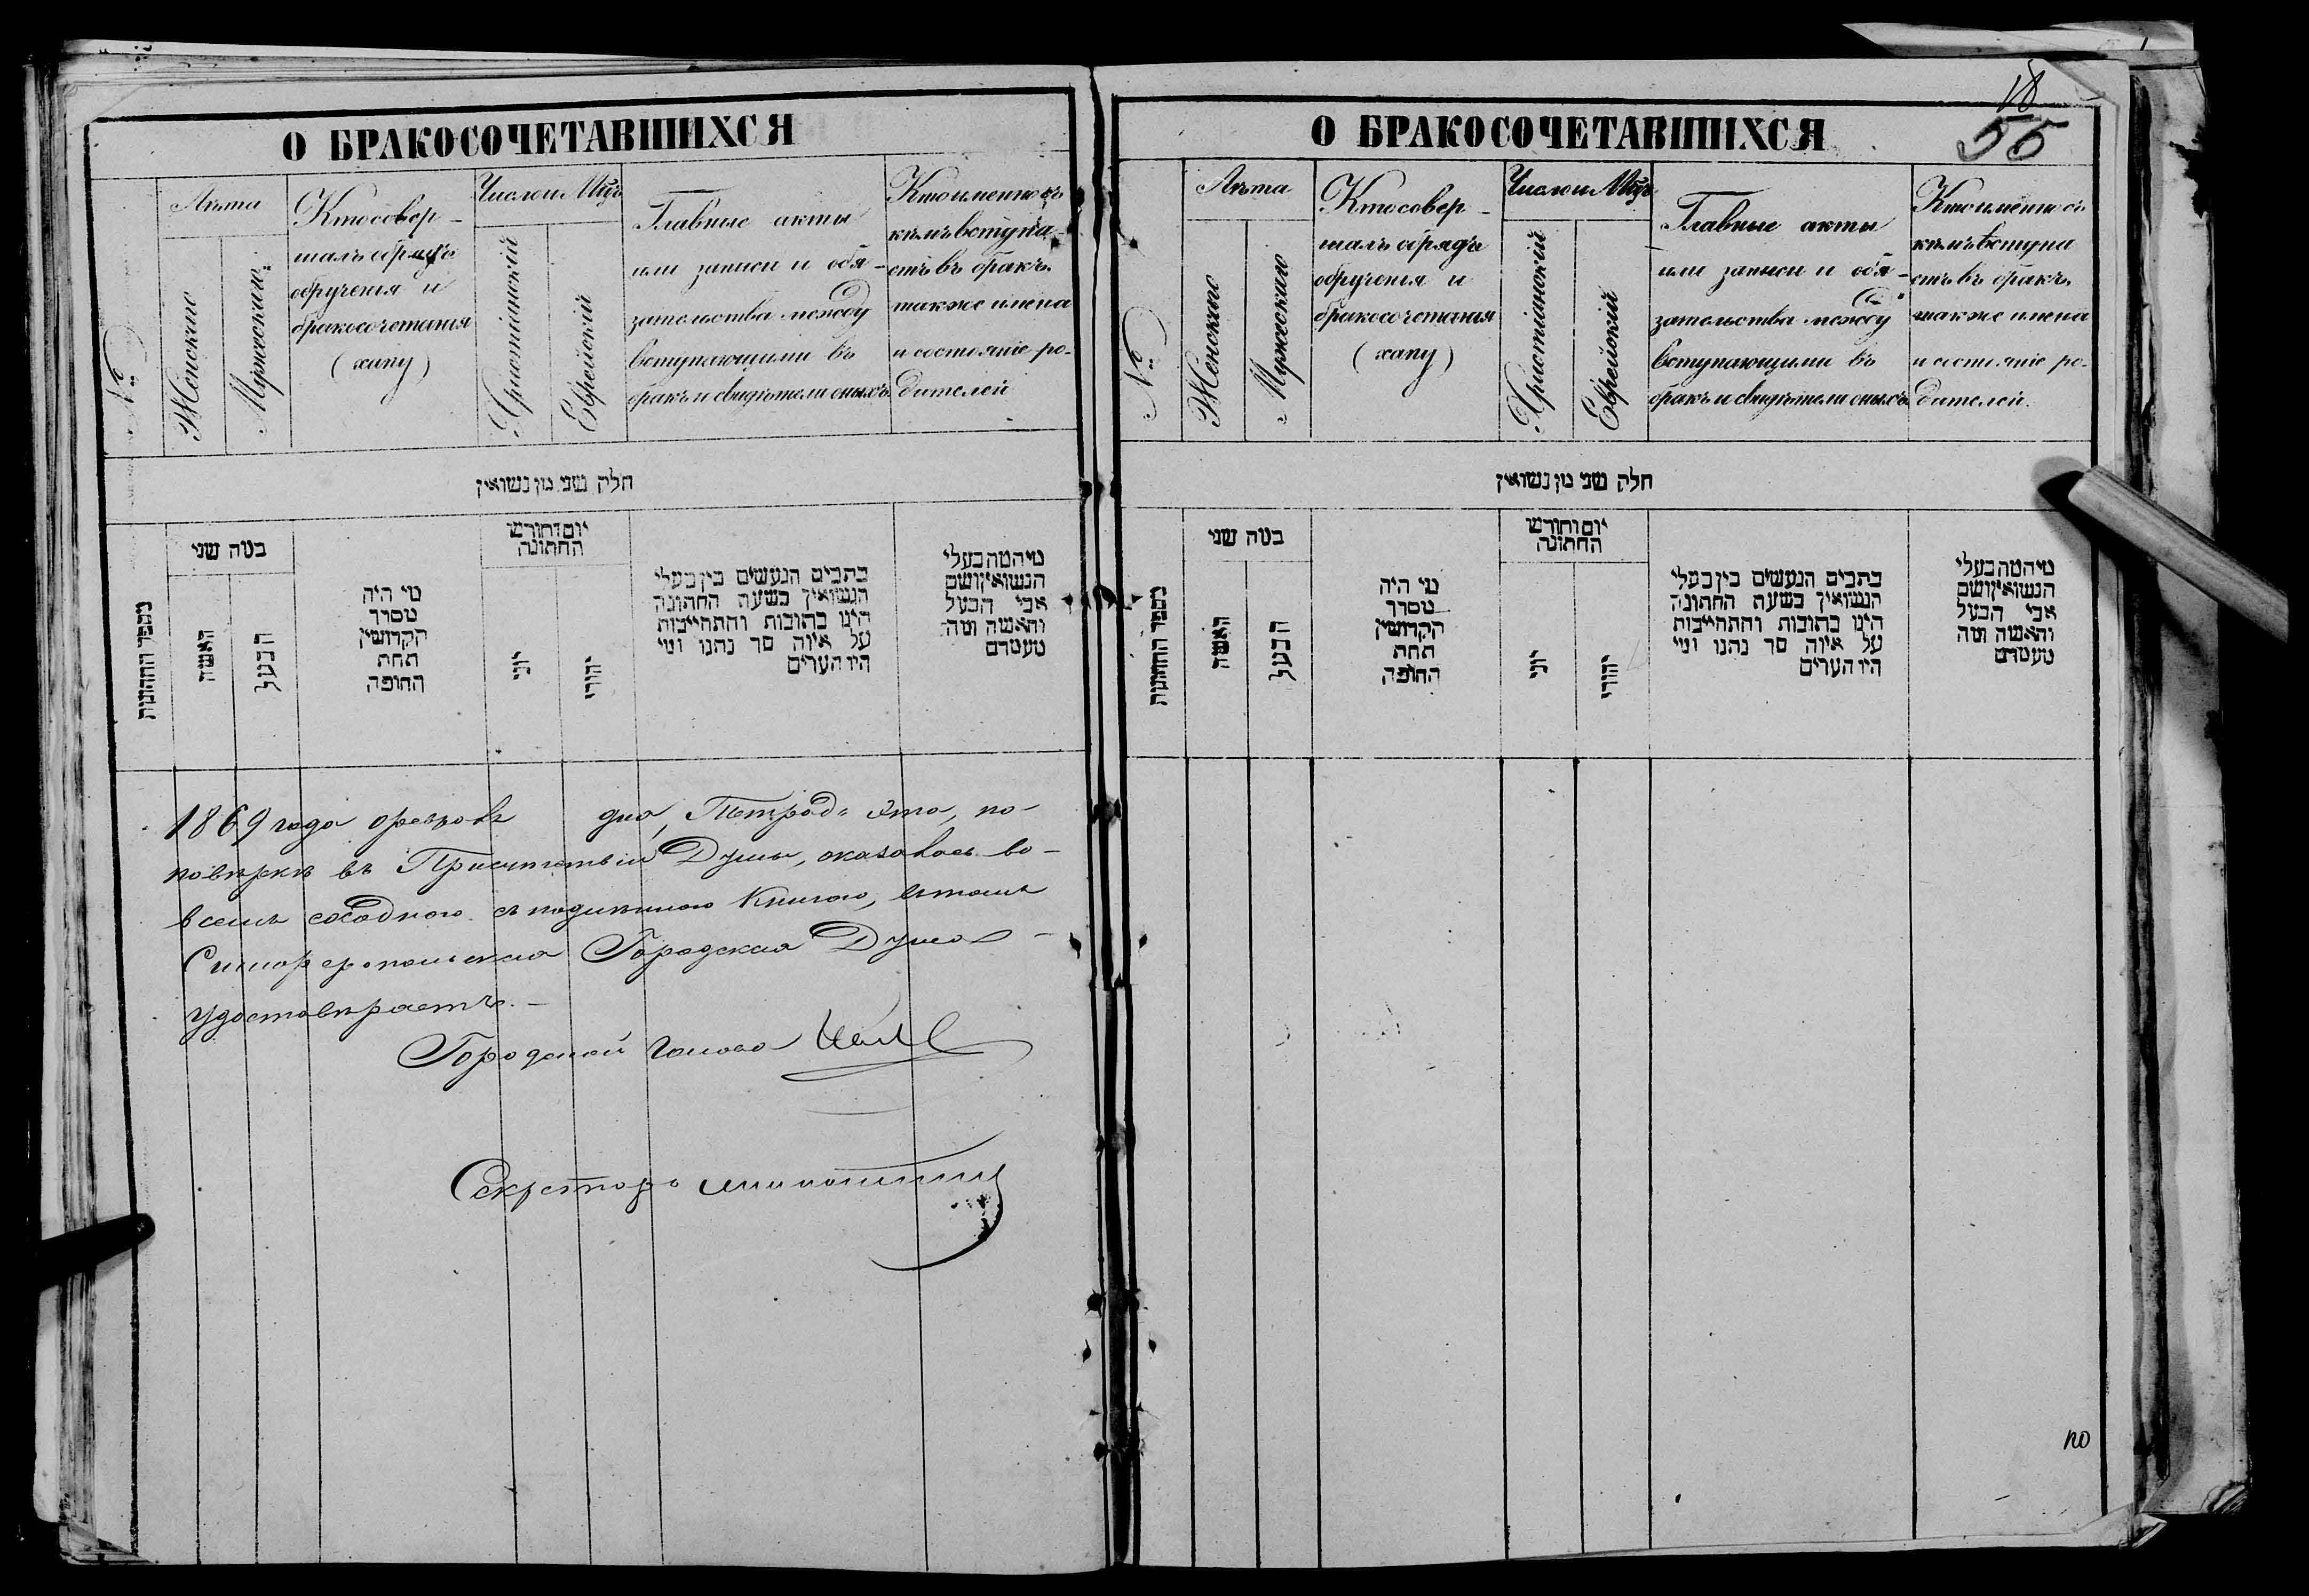 О БРАКОСОЧЕТАВШИХСЯ
№
Лѣта
Женскаго
Мужескаго
Кто совер-
шалъ обрядъ
обрученія и
бракосочетанія
(хупу)
Число и Мцъ
Христіанскій
Еврейскій
Главные акты
или записи и обя-
зательства между
вступающими въ
бракъ и свидѣтели оныхъ
Кто именно съ
кѣмъ вступа-
етъ въ бракъ.
также имена
и состояніе ро-
дителей
חלק שני מן נשואין
מספר החתונות
כמה שני
האשה
הבעל
מי היה
מסדר
הקדושין
תחת
החופה
יום וחודש
החתונה
יוני
יהודי
כתבים הנעשים בין בעלי
הנשואין בשעת החתונה
היינו כתובות והתחייבות
על איזה סך נתנו ומי
היו העדים
מי המה בעלי
הנשואין ושם
אבי הבעל
והאשה ומה
מעמדם
1869 года дня, Тетрадь эта, по-
повѣркѣ въ Присутствіи Думы, оказалась во-
всемъ сходною съ подлинною Книгою, въ томъ
Симферопольская Городская Дума
удостовѣряетъ. -
Городской голова
Секретарь
О БРАКОСОЧЕТАВШИХСЯ
18
55
№
Лѣта
Женскаго
Мужескаго
Кто совер-
шалъ обрядъ
обрученія и
бракосочетанія
(хупу)
Число и Мцъ
Христіанскій
Еврейскій
Главные акты
или записи и обя-
зательства между
вступающими въ
бракъ и свидѣтели оныхъ
Кто именно съ
кѣмъ вступа
етъ въ бракъ.
также имена
и состояніе ро-
дителей.
חלק שני מן נשואין
מספר החתונות
כמה שני
האשה
הבעל
מי היה
מסדר
הקדושין
תחת
החופה
יום וחודש
החתונה
יוני
יהודי
כתבים הנעשים בין בעלי
הנשואין בשעת החתונה
היינו כתובות והתחייבות
על איזה סך נתנו ומי
היו העדים
מי המה בעלי
הנשואין ושם
אבי הבעל
והאשה ומה
מעמדם
по